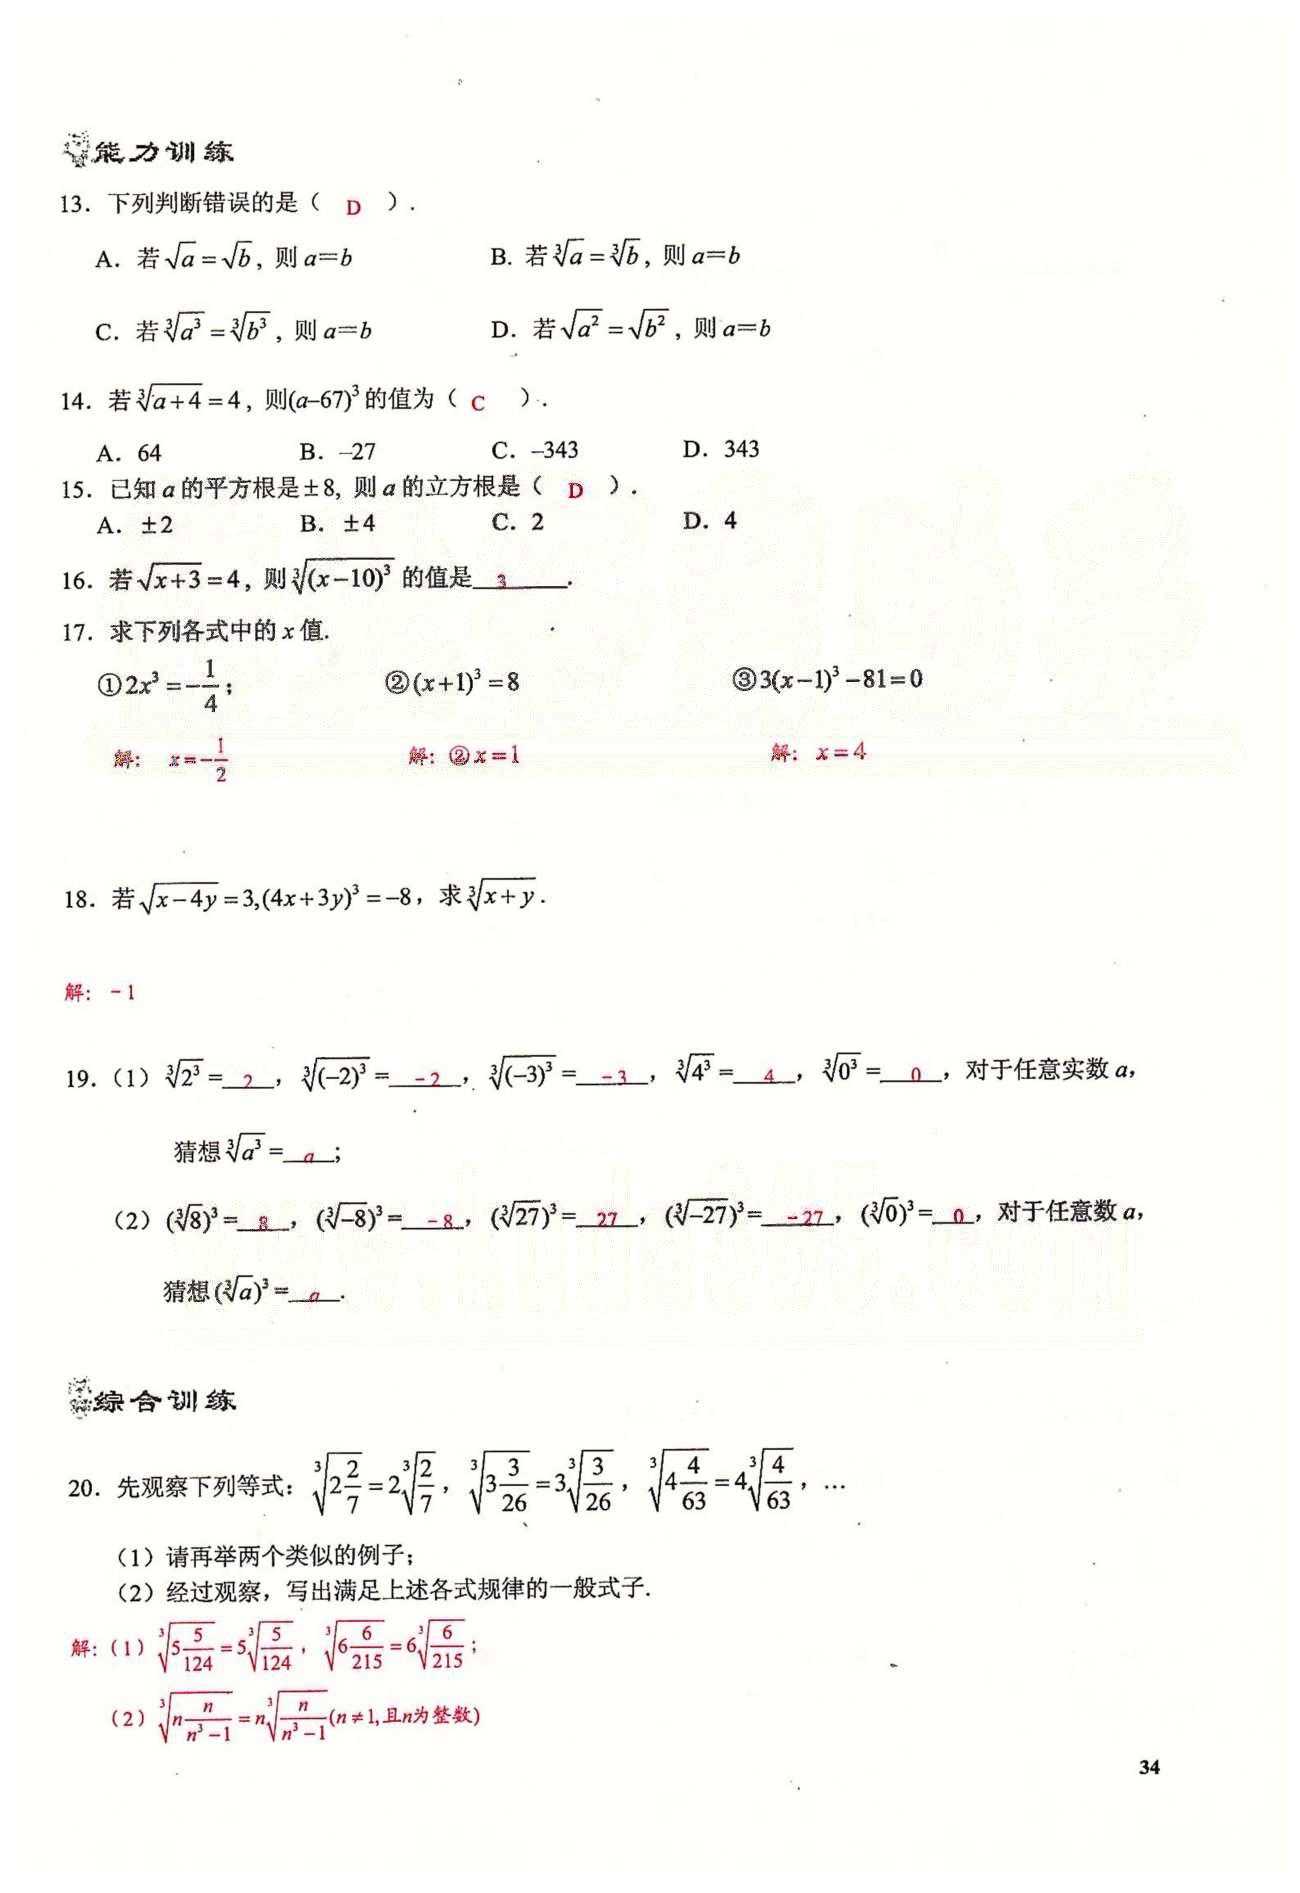 能力训练
13．下列判断错误的是（ D ）．
A．若√a=√b，则a=b B. 若∛a=∛b，则a=b
C．若∛a³=∛b³，则a=b D．若√a²=√b²，则a=b
14．若∛(a+4)=4，则(a–67)³的值为（ C ）．
A．64 B．–27 C．–343 D．343
15．已知a的平方根是±8, 则a的立方根是（ D ）．
A．±2 B．±4 C．2 D．4
16．若√(x+3)=4，则∛((x−10)³)的值是 3 .
17．求下列各式中的x值.
①2x³=−1/4; ②(x+1)³=8 ③3(x−1)³−81=0
解: x=−1/2 解: ②x=1 解: x=4
18．若√(x−4y)=3,(4x+3y)³=−8，求∛(x+y).
解: −1
19．（1）∛2³= 2 ，∛(−2)³= −2 ，∛(−3)³= −3 ，∛4³= 4 ，∛0³= 0 ，对于任意实数a，
猜想∛a³= a ；
（2）(∛8)³= 8 ，(∛−8)³= −8 ，(∛27)³= 27 ，(∛−27)³= −27 ，(∛0)³= 0 ，对于任意数a，
猜想(∛a)³= a .
综合训练
20．先观察下列等式：∛(2 2/7)=2∛(2/7)，∛(3 3/26)=3∛(3/26)，∛(4 4/63)=4∛(4/63)，…
（1）请再举两个类似的例子；
（2）经过观察，写出满足上述各式规律的一般式子.
解:（1）∛(5 5/124)=5∛(5/124)，∛(6 6/215)=6∛(6/215)；
（2）∛(n n/(n³−1))=n∛(n/(n³−1))(n≠1,且n为整数)
34